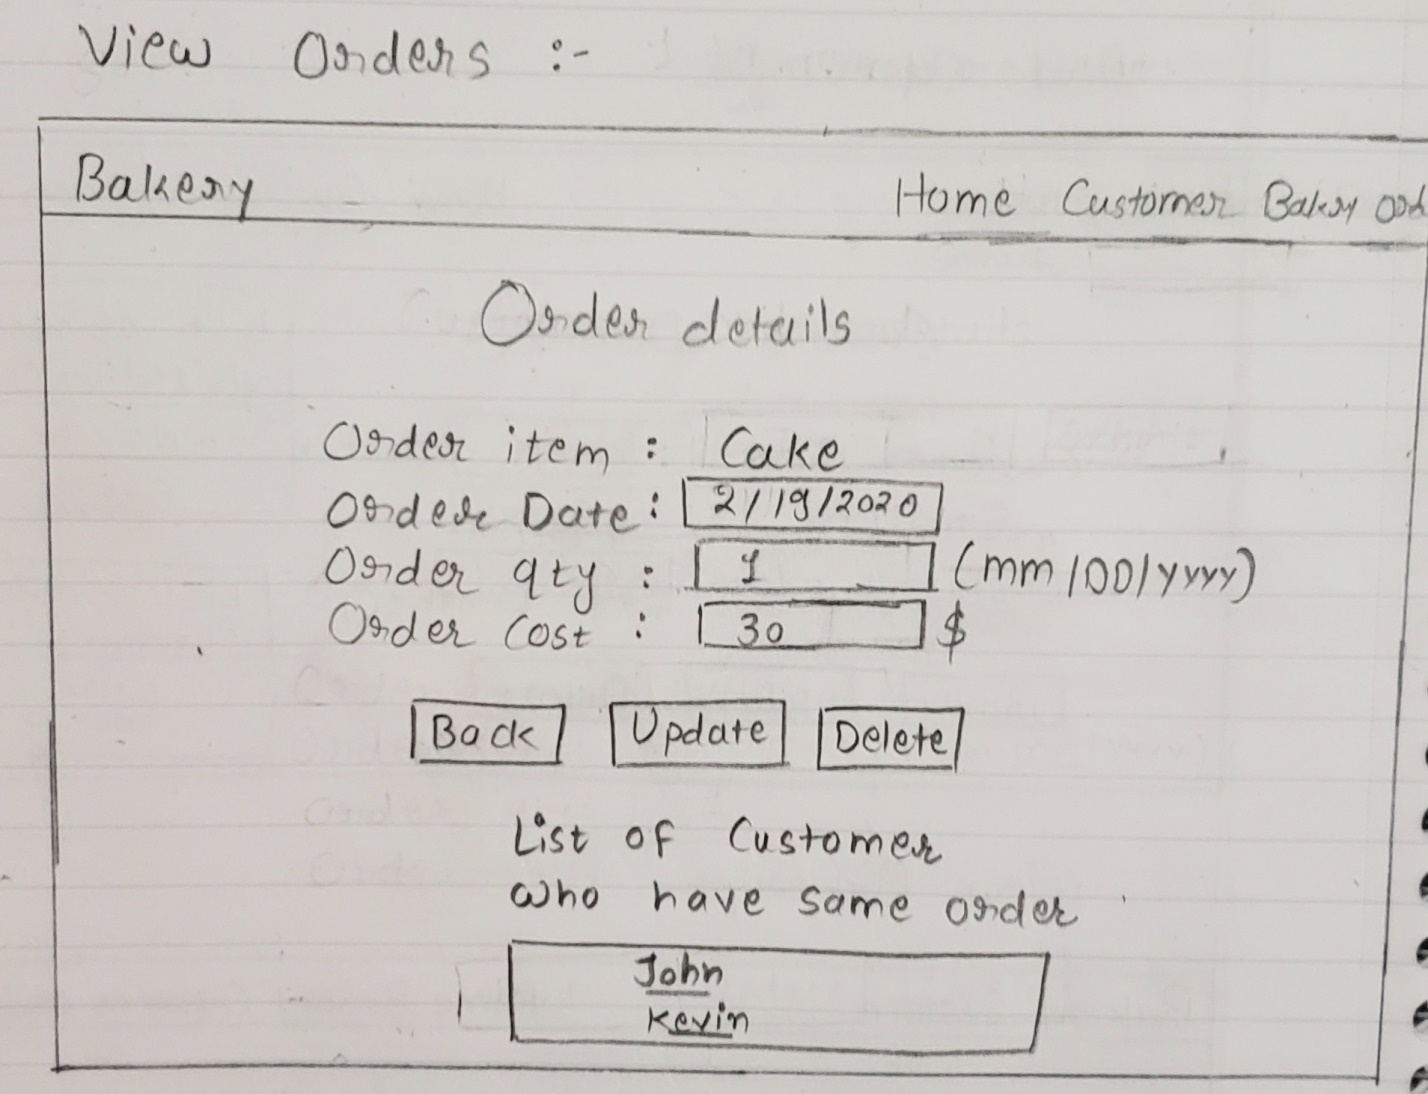 View Orders :-
Bakery Home Customer Bakery ord
Order details
Order item : Cake
Order Date : 2/19/2020
Order qty : 1 (mm/DD/yyyy)
Order Cost : 30 $
Back Update Delete
List of Customer
who have same order
John
Kevin